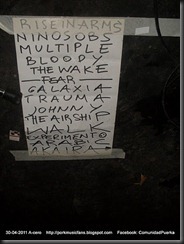 RISE IN ARMS
NINOSOBS
MULTIPLE
BLOODY
THE WAKE
FEAR
GALAXIA
TRAUMA
JOHNNY
THE AIRSHIP
WALK
EXPERIMENTO
ARABIC
AKAIDA
30-04-2011 A-cero / http://porkmusicfans.blogspot.com Facebook: ComunidadPuerka